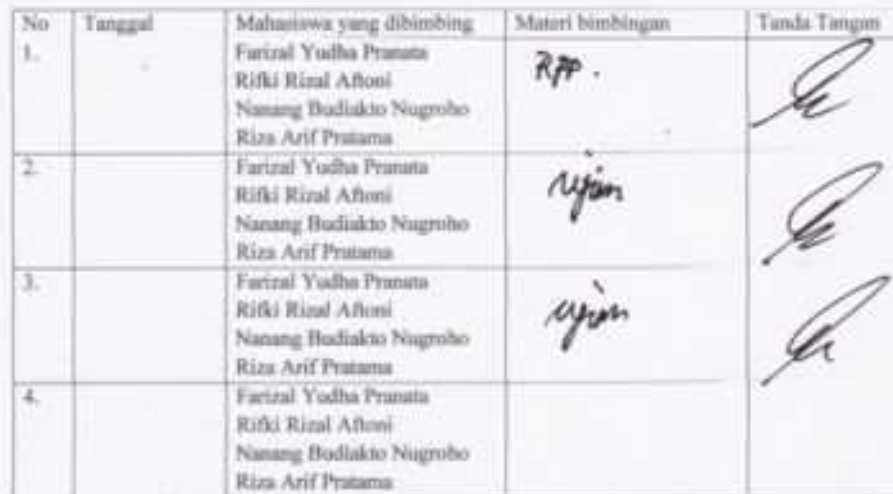 No Tanggal Mahasiswa yang dibimbing Materi bimbingan Tanda Tangan
1. Farizal Yudha Pranata RPP.
Rifki Rizal Aftoni
Nanang Budiakto Nugroho
Riza Arif Pratama
2. Farizal Yudha Pranata ujian
Rifki Rizal Aftoni
Nanang Budiakto Nugroho
Riza Arif Pratama
3. Farizal Yudha Pranata ujian
Rifki Rizal Aftoni
Nanang Budiakto Nugroho
Riza Arif Pratama
4. Farizal Yudha Pranata
Rifki Rizal Aftoni
Nanang Budiakto Nugroho
Riza Arif Pratama